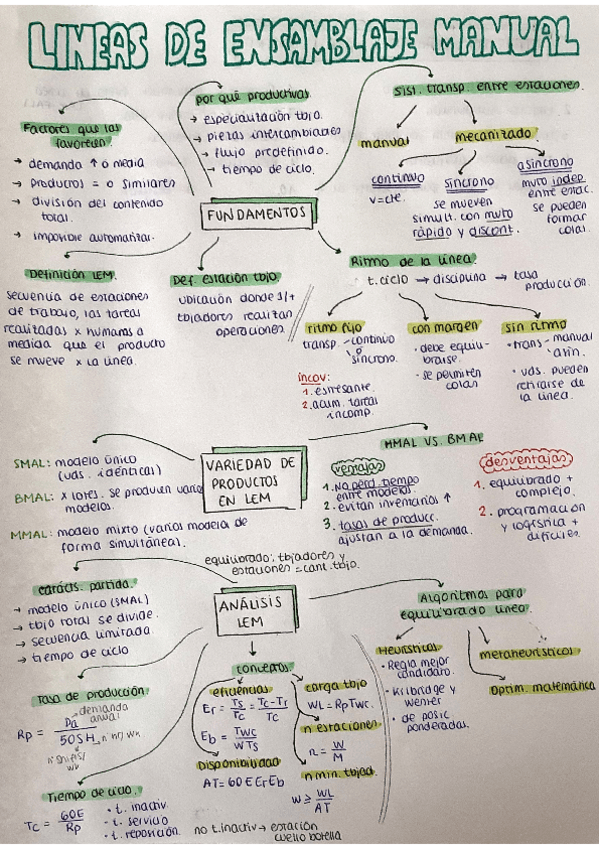 LINEAS DE ENSAMBLAJE MANUAL
Factores que las
favorecen.
→ demanda ↑ o media
→ productos = o similares
→ división del contenido
total.
→ imposible automatizar.
por qué productivas
→ especialización tbjo.
→ piezas intercambiables
→ flujo predefinido.
→ tiempo de ciclo.
sist. transp. entre estaciones.
manual
mecanizado.
continuo
v=cte.
síncrono
se mueven
simult. con mvto
rápido y discont.
asíncrono
mvto indep.
entre estac.
se pueden
formar
colas.
FUNDAMENTOS
Definición LEM.
secuencia de estaciones
de trabajo, las tareas
realizadas x humanos a
medida que el producto
se mueve x la línea.
Def. estación tbjo.
ubicación donde 1/+
tbjadores realizan
operaciones
Ritmo de la línea.
t. ciclo → disciplina → tasa
producción.
ritmo fijo
transp. - continuo
o
síncrono.
incov:
1. estresante.
2. acum. tareas
incomp.
con margen
· debe equili-
brarse.
· se permiten
colas
sin ritmo
· trans - manual
asín.
· uds. pueden
retirarse de
la línea.
VARIEDAD DE
PRODUCTOS
EN LEM
SMAL: modelo único
(uds. idénticas)
BMAL: x lotes. se producen varios
modelos.
MMAL: modelo mixto (varios modelos de
forma simultánea).
MMAL VS. BMAL
ventajas
1. no perd. tiempo
entre modelos.
2. evitan inventarios ↑
3. tasas de producc.
ajustan a la demanda.
desventajas
1. equilibrado +
complejo.
2. programación
y logística +
difíciles.
equilibrado: tbjadores y
estaciones = cant. tbjo.
ANÁLISIS
LEM
caracts. partida.
→ modelo único (SMAL)
→ tbjo total se divide.
→ secuencia limitada.
→ tiempo de ciclo
Tasa de producción.
Rp = Da / 50SH
demanda
anual
Tiempo de ciclo.
Tc = 60E / Rp
· t. inactiv.
· t. servicio
· t. reposición.
no t. inactiv → estación
cuello botella
conceptos.
eficiencias
Er = Ts / Tc = Tc - Tr / Tc
Eb = Twc / w Ts
Disponibilidad
AT = 60 E Er Eb
carga tbjo
WL = Rp Twc.
n estaciones
n = w / M
n min. tbjad.
w ≥ WL / AT
Algoritmos para
equilibrado línea.
Heurísticos
· Regla mejor
candidato.
· Kilbridge y
wester
· de posic
ponderadas.
metaheurísticos
optim. matemática